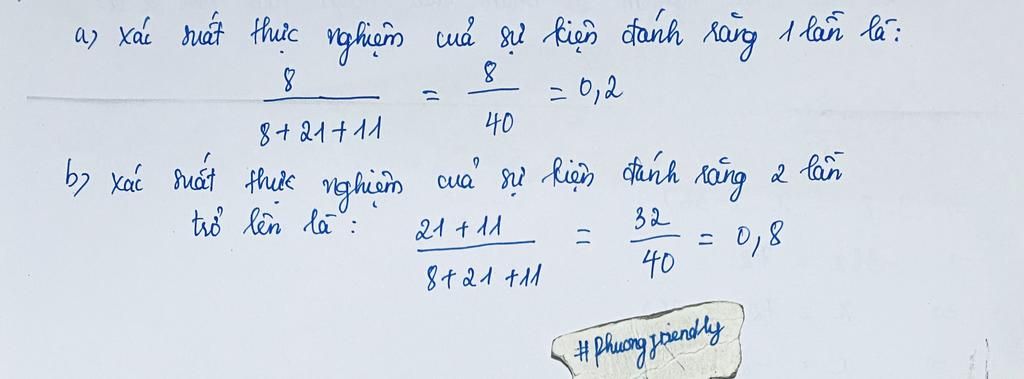 a) Xác suất thực nghiệm cuả sự kiện đánh răng 1 lần là:
8 / 8 + 21 + 11 = 8 / 40 = 0,2
b) Xác suất thực nghiệm cuả sự kiện đánh răng 2 lần
trở lên là: 21 + 11 / 8 + 21 + 11 = 32 / 40 = 0,8
#Phuongfriendly